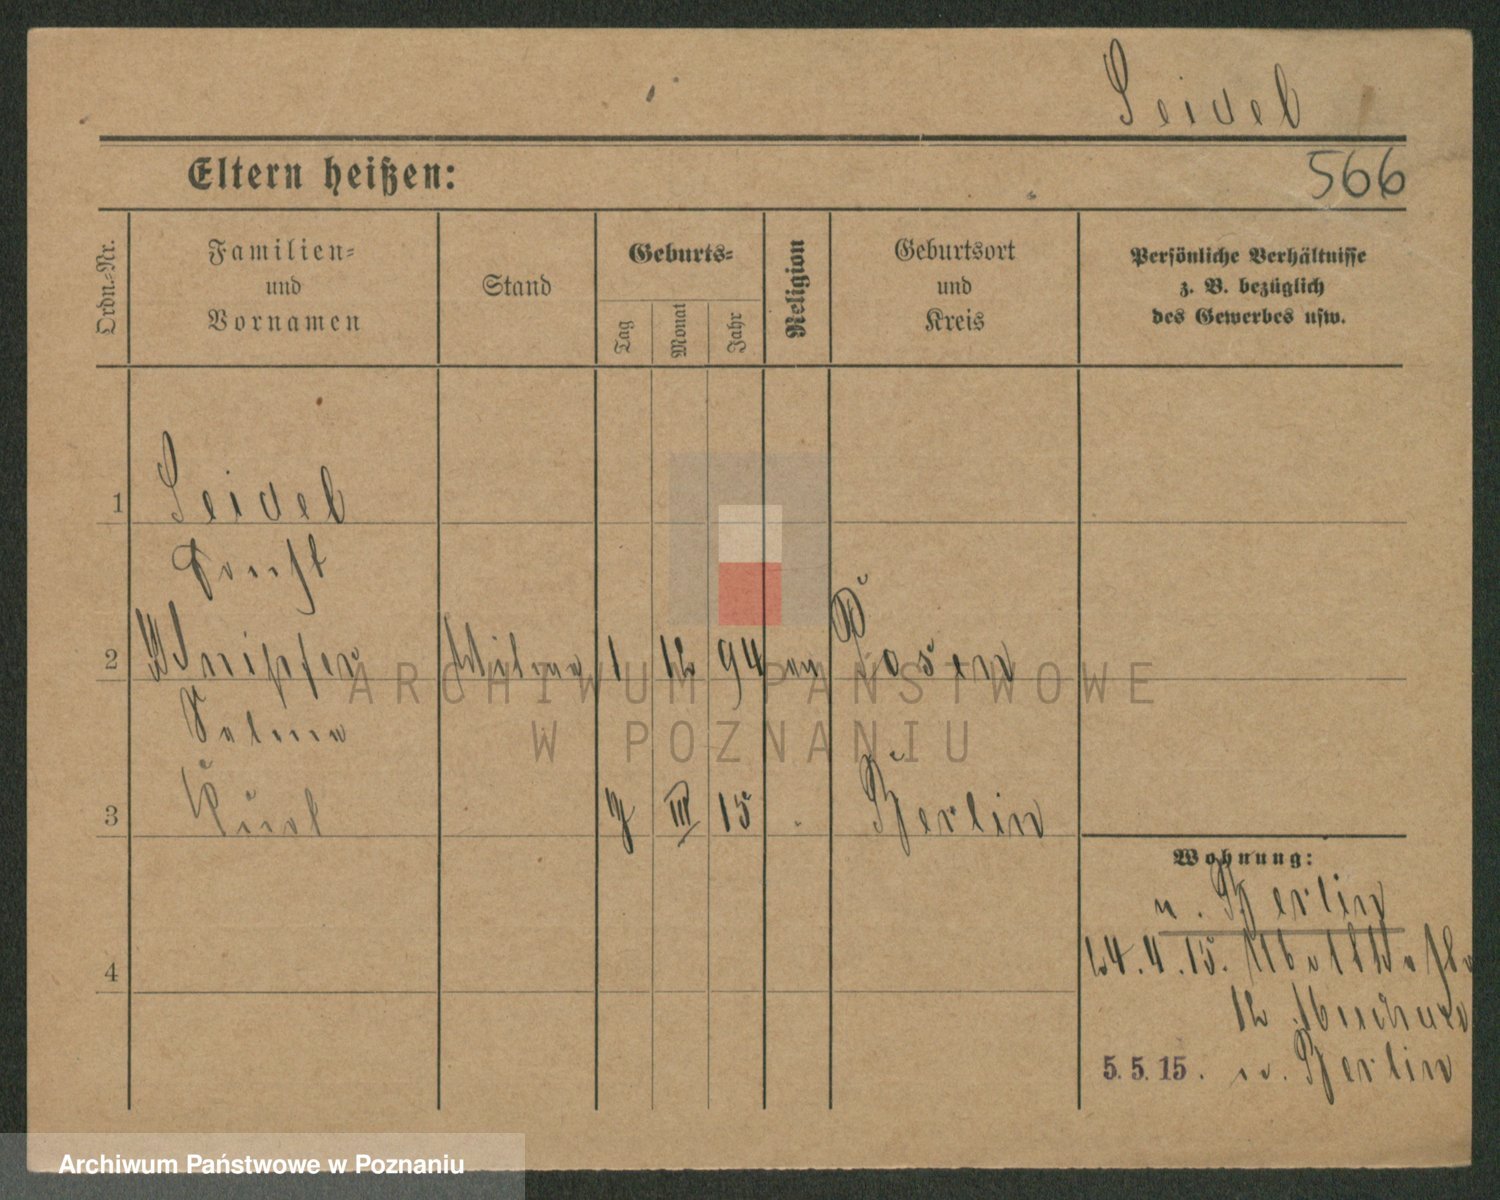 Seidel
Eltern heißen:
566
Ordn.-Nr.
Familien-
und
Vornamen
Stand
Geburts-
Tag
Monat
Jahr
Religion
Geburtsort
und
Kreis
Persönliche Verhältnisse
z. B. bezüglich
des Gewerbes usw.
1 Seidel
Ernst
2 1 12 94 ev Posen
Selma
3 Kurt III 15 Berlin
Wohnung:
n. Berlin
24.4.15.
12
4
5.5.15. n. Berlin
ARCHIWUM PAŃSTWOWE
W POZNANIU
Archiwum Państwowe w Poznaniu